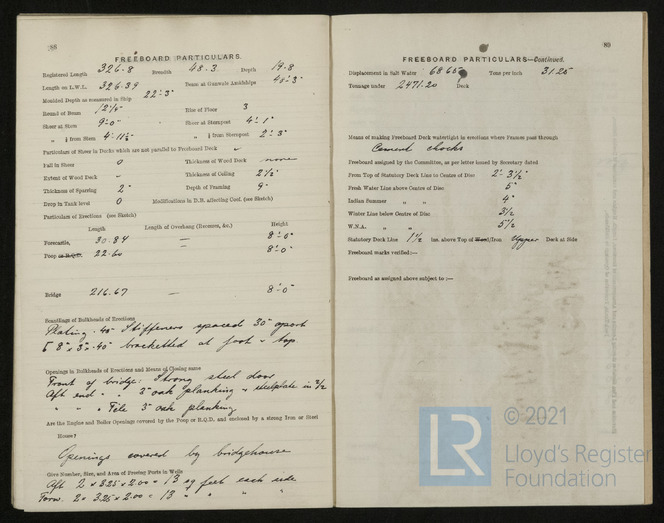 88
FREEBOARD PARTICULARS.
Registered Length 326.8 Breadth 48.3 Depth 19.8
Length on L.W.L. 326.39 Beam at Gunwale Amidships 48'-3"
Moulded Depth as measured in Ship 22'-3"
Round of Beam 12½" Rise of Floor 3
Sheer at Stem 9'-0" Sheer at Sternpost 4'-1"
" ⅛ from Stem 4'-11½" " ⅛ from Sternpost 2'-3"
Particulars of Sheer in Decks which are not parallel to Freeboard Deck
Fall in Sheer 0 Thickness of Wood Deck none
Extent of Wood Deck - Thickness of Ceiling 2½"
Thickness of Sparring 2" Depth of Framing 9"
Drop in Tank level 0 Modifications in D.B. affecting Coef. (see Sketch)
Particulars of Erections (see Sketch)
Length Length of Overhang (Recesses, &c.) Height
Forecastle, 30.84 — 8'-0"
Poop or R.Q.D. 22.60 8'-0"
Bridge 216.67 — 8'-0"
Scantlings of Bulkheads of Erections
Plating .40 Stiffeners spaced 30" apart
8" x 3" x .40 bracketted at foot & top
Openings in Bulkheads of Erections and Means of Closing same
Front of bridge: Strong steel door
Aft end " " 3" oak planking & steelplate in
" " " F'cle 3" oak planking
Are the Engine and Boiler Openings covered by the Poop or R.Q.D. and enclosed by a strong Iron or Steel
House?
Openings covered by bridgehouse
Give Number, Size, and Area of Freeing Ports in Wells
Aft 2 x 3.25 x 2.00 = 13 sq feet each side
Forw. 2 x 3.25 x 2.00 = 13 " " " "
89
FREEBOARD PARTICULARS—Continued.
Displacement in Salt Water 6865 Tons per inch 31.25
Tonnage under 2471.20 Deck
Means of making Freeboard Deck watertight in erections where Frames pass through
Cement chocks
Freeboard assigned by the Committee, as per letter issued by Secretary dated
From Top of Statutory Deck Line to Centre of Disc 2'-3½"
Fresh Water Line above Centre of Disc 5"
Indian Summer " " 4"
Winter Line below Centre of Disc 3½
W.N.A. " " 5½
Statutory Deck Line 1½ ins. above Top of Wood/Iron Upper Deck at Side
Freeboard marks verified:—
Freeboard as assigned above subject to:—
LR
© 2021
Lloyd's Register
Foundation